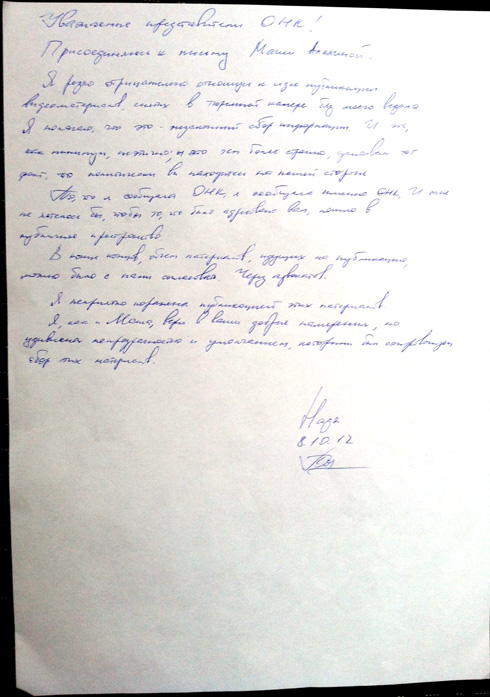 Уважаемые представители ОНК!
Присоединяюсь к письму Маши Алехиной.
Я резко отрицательно отношусь к идее публикации
видеоматериалов, снятых в тюремной камере без моего ведома
Я полагаю, что это - незаконный сбор информации. И же,
как минимум, неэтично; и это тем более странно, учитывая тот
факт, что политически вы находитесь на нашей стороне
То, что я сообщала ОНК, я сообщала именно ОНК. И мне
не хотелось бы, чтобы то, что было адресовано вам, попало в
публичное пространство
В конце концов, объем материалов, идущих на публикацию,
можно было с нами согласовать. Через адвокатов.
Я неприятно поражена публикацией этих материалов
Я, как и Маша, верю в ваши добрые намерения, но
удивлена непрозрачностью и умолчанием, которыми был сопровожден
сбор этих материалов.
Надя
8.10.12